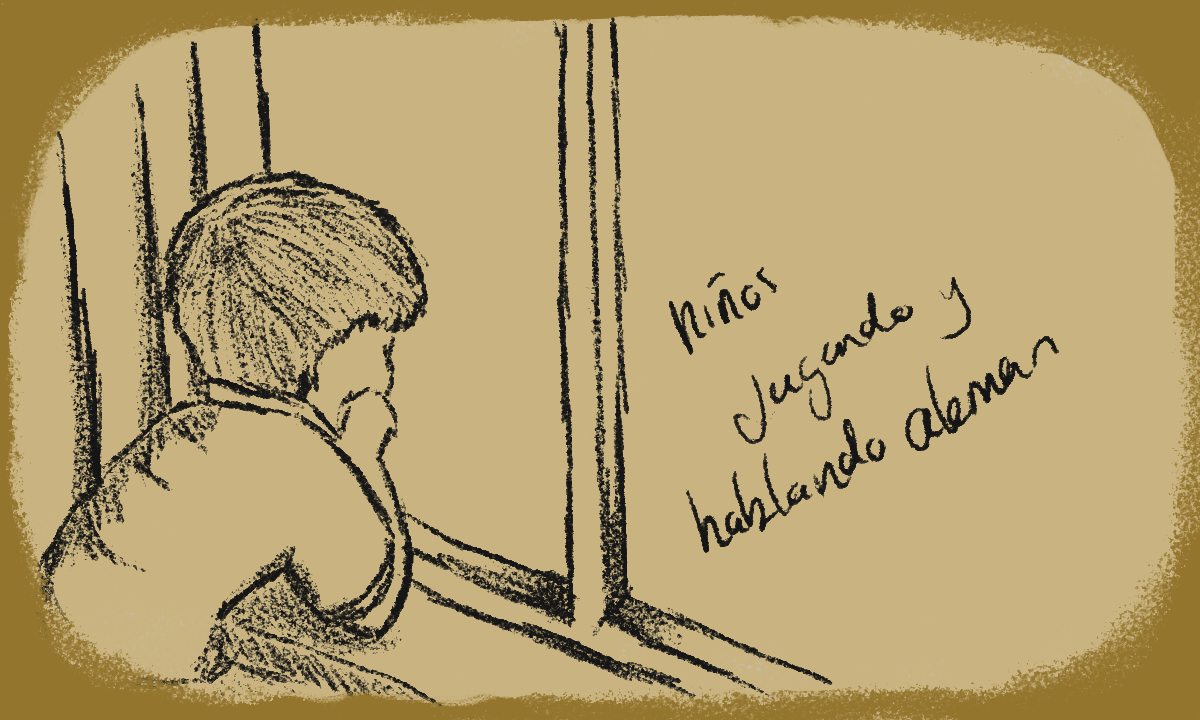 niños
Jugando y
hablando aleman